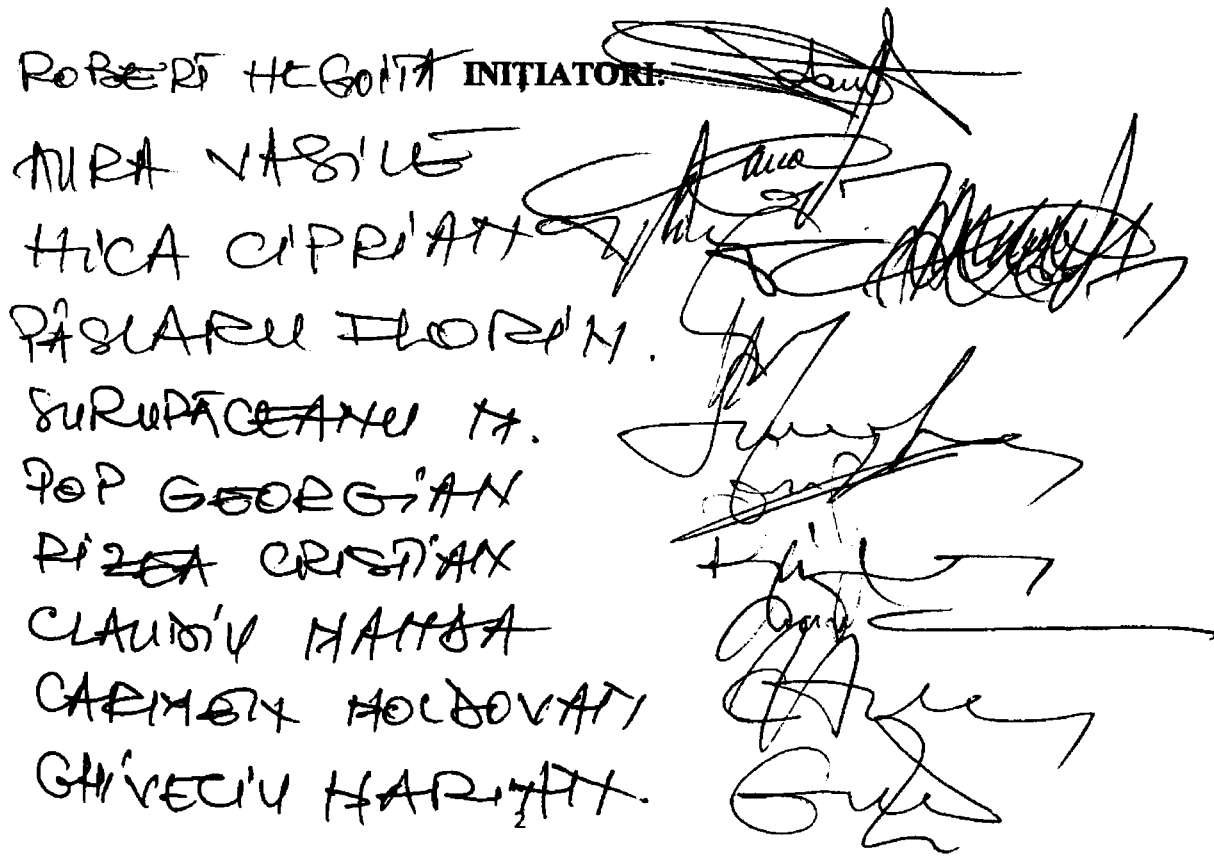 ROBERT NEGOIȚĂ INIȚIATORI:
AURA VASILE
NICA CIPRIAN
PÂSLARU FLORIN.
SURUPĂCEANU M.
POP GEORGIAN
RIZEA CRISTIAN
CLAUDIU MANDA
CARMEN MOLDOVAN
GHIVECIU MARIAN.
2